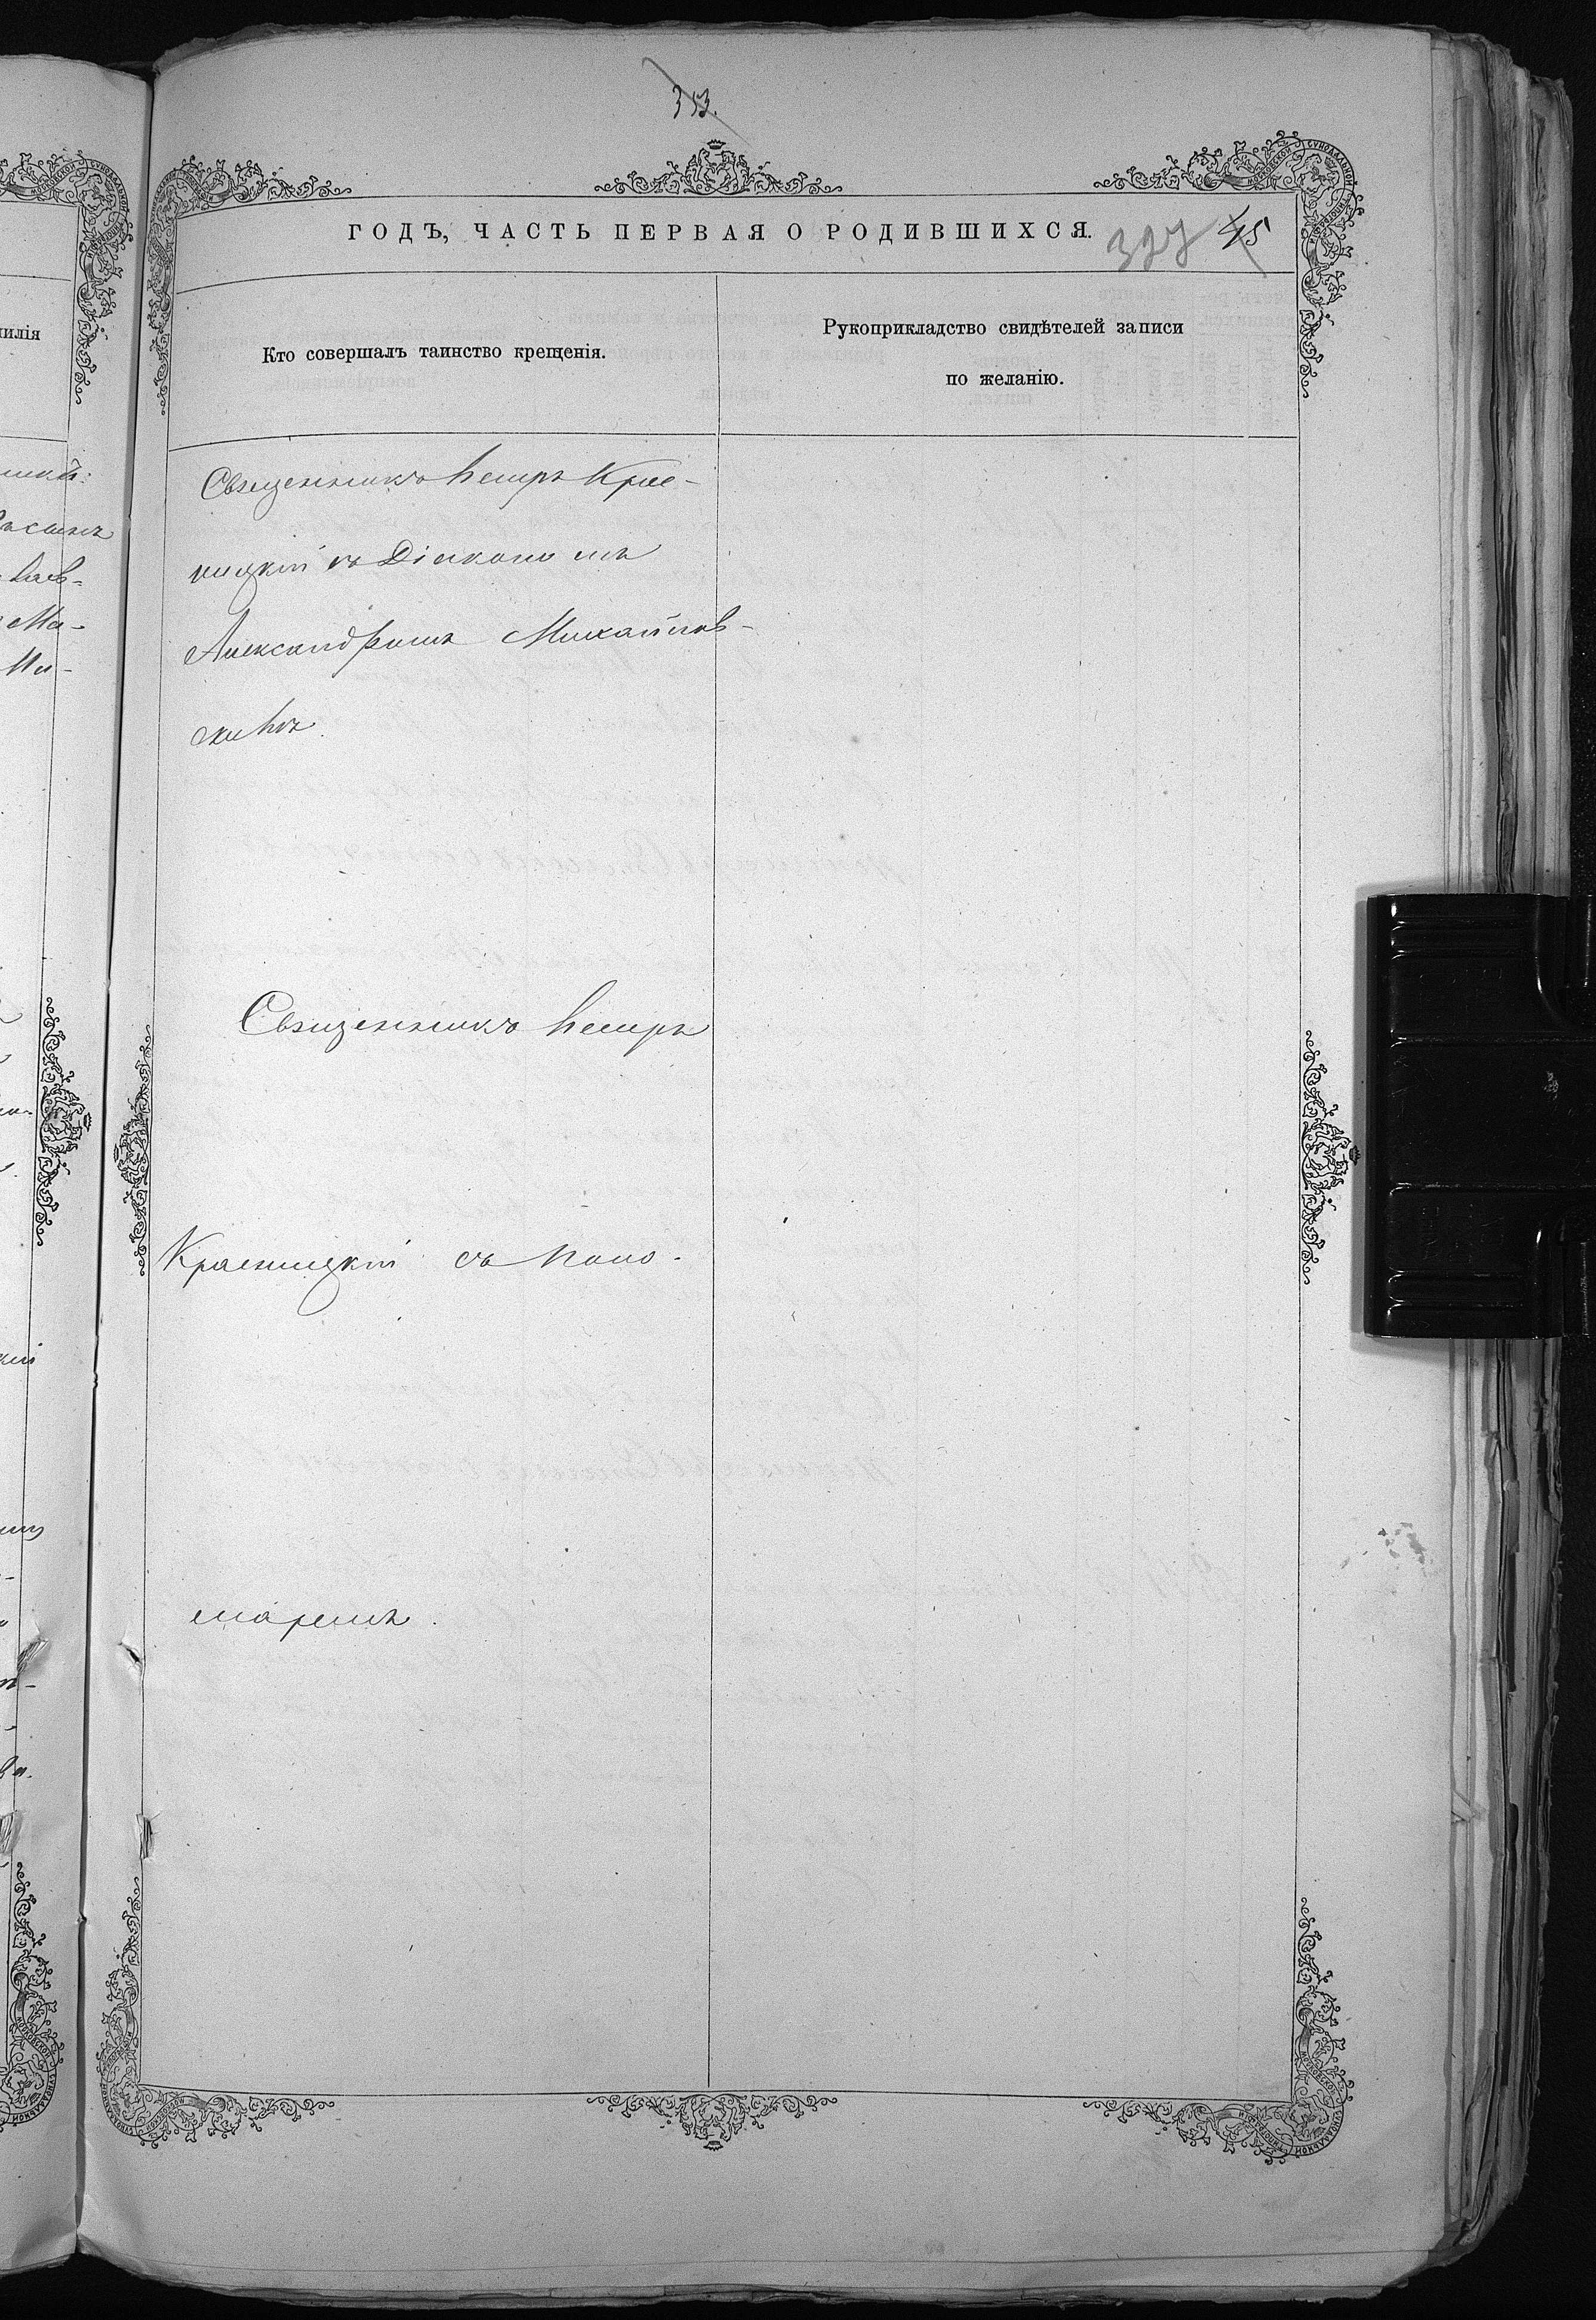 353.
ГОДЪ, ЧАСТЬ ПЕРВАЯ О РОДИВШИХСЯ.
327 45
Кто совершалъ таинство крещенія.
Рукоприкладство свидѣтелей записи
по желанію.
Священникъ Петръ Крас-
ницкій съ Діакономъ
Александромъ Михайлов-
скимъ.
Священникъ Петръ
Красницкій съ Поно-
маремъ.